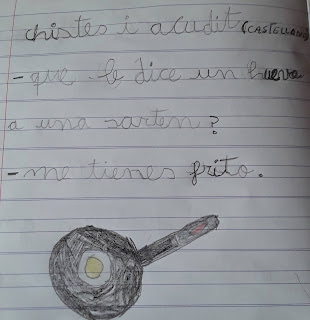 chistes i acudit (CASTELLANO)
- que le dice un huevo
a una sarten?
- me tienes frito.